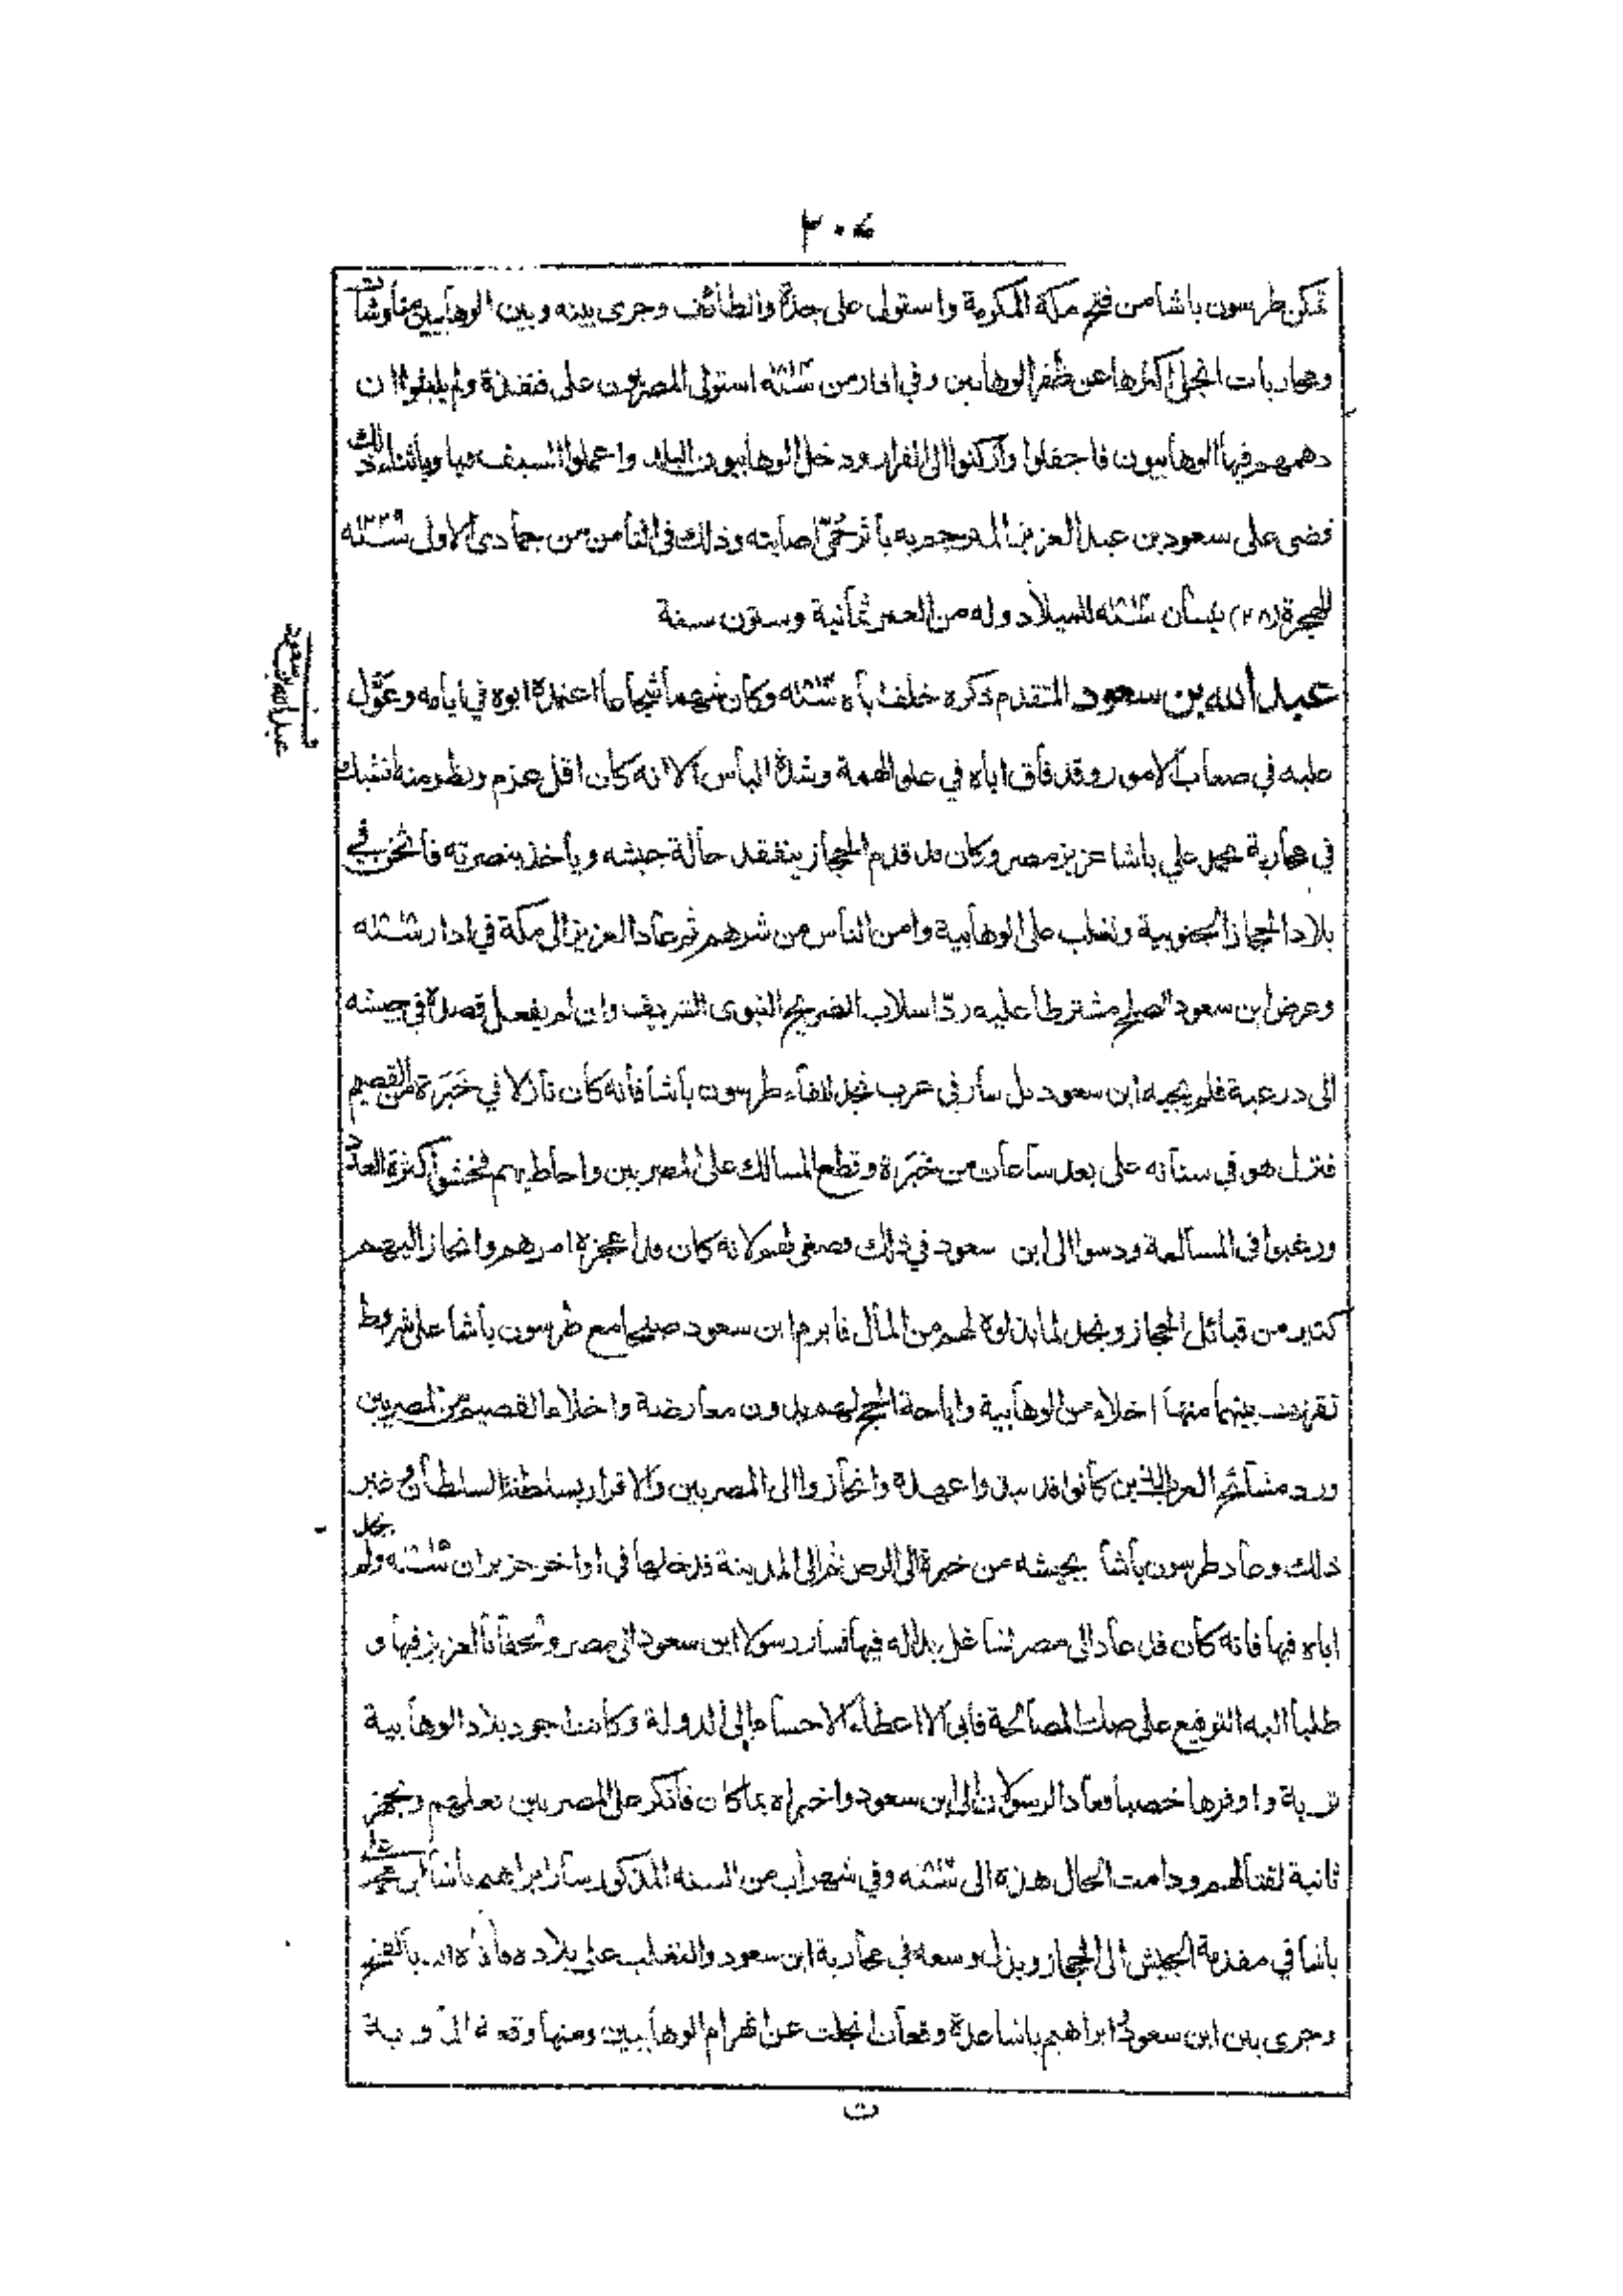 تمكن طرسون باشا من فتح مكة المكرمة واستولى على جدة والطائف وجرى بينه وبين الوهابيين مناوشات
ومحاربات انجلى اكثرها عن ظفر الوهابيين وفي اذار من سنة استولى المصريون على قنفذة ولم يلبثوا ان
دهمهم فيها الوهابيون فاجفلوا واركنوا الى الفرار ودخل الوهابيون البلاد واعملوا السيف فيها وباثناء ذلك
قضى على سعود بن عبد العزيز المترجم به باثر حُمّى اصابته وذلك في الثامن من جمادى الاول سنة ١٢٢٩
للهجرة (٢٨) نيسان سنة للميلاد وله من العمر ثمانية وستون سنة
عبد الله بن سعود
عبد الله بن سعود المتقدم ذكره خلف اباه سنة وكان شهما شجاعا اعتمده ابوه في ايامه وعوَّل
عليه في صعاب الامور وقد فاق اباه في علو الهمة وشدة البأس الا انه كان اقل عزم ونظر منه اشتبك
في محاربة محمد علي باشا عزيز مصر وكان قد قدم الحجاز يتفقد حالة جيشه وياخذ بنصرته فاثخن في
بلاد الحجاز الجنوبية وتغلب على الوهابية وامن الناس من شرهم ثم عاد العزيز الى مكة في اذار سنة
وعرض ابن سعود الصلح مشترطا عليه ردّ اسلاب الضريح النبوى الشريف وان لم يفعل قصده في جيشه
الى درعية فلم يجبه ابن سعود بل سار في عرب نجد للقاء طرسون باشا فانه كان نازلا في خَبَرَة من القصيم
فنزل هو في سنانه على بعد ساعات من خَبَرَة وقطع المسالك على المصريين واحاط بهم فخشوا كثرة العدد
ورغبوا في المسالمة ودسوا الى ابن سعود في ذلك فصغى لهم لانه كان قد اعجزه امرهم وانحاز اليهم
كثير من قبائل الحجاز ونجد لما بذلوه لهم من المال فابرم ابن سعود صلحا مع طرسون باشا على شروط
تقررت بينهما منها اخلاء من الوهابية واباحة الحج لهم بدون معارضة واخلاء القصيم من المصريين
ورد مشائخ العرب الذين كانوا قد سبقوا عهده وانحازوا الى المصريين والاقرار بسلطنة السلطان وغير
ذلك وعاد طرسون باشا بجيشه من خبرة الى الرص ثم الى المدينة فدخلها في اواخر حزيران سنة ولم يجد
اباه فيها فانه كان قد عاد الى مصر لشاغل بدا له فيها فسار رسولا ابن سعود الى مصر ولحقا بالعزيز فيها و
طلبا اليه التوقيع على صك المصالحة فابى الا اعطاء الاحساء الى الدولة وكانت اجود بلاد الوهابية
تربة واوفرها خصبا فعاد الرسولان الى ابن سعود واخبراه بما كان فانكر على المصريين فعلهم وتجهز
ثانية لقتالهم ودامت الحال هذه الى سنة وفي شهر اب من السنه المذكورة سار ابراهيم باشا ابن محمد علي
باشا في مقدمة الجيش الى الحجاز وبذل وسعه في محاربة ابن سعود والتغلب على بلاده بالفتح
وجرى بين ابن سعود و ابراهيم باشا عدة وقعات انجلت عن انهزام الوهابيين ومنها وقعة
ت